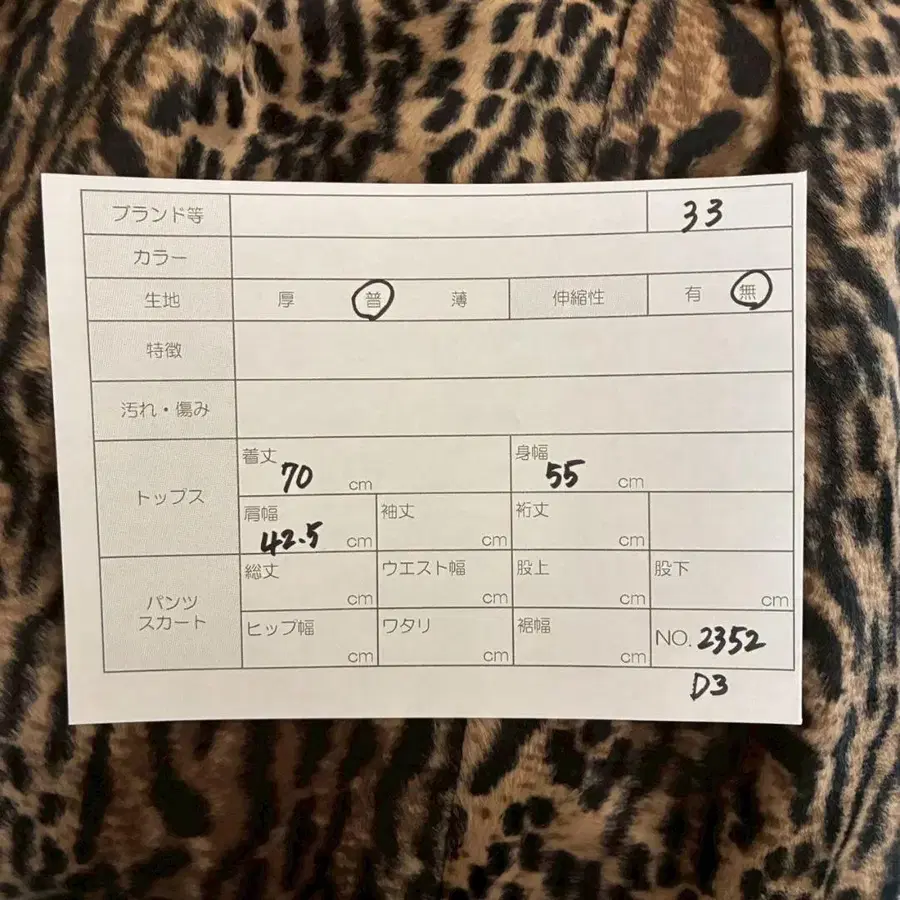 ブランド等 33
カラー
生地 厚 普 薄 伸縮性 有 無
特徴
汚れ・傷み
トップス
着丈 70 cm 身幅 55 cm
肩幅 42.5 cm 袖丈 cm 裄丈 cm
パンツ
スカート
総丈 cm ウエスト幅 cm 股上 cm 股下 cm
ヒップ幅 cm ワタリ cm 裾幅 cm NO. 2352
D3